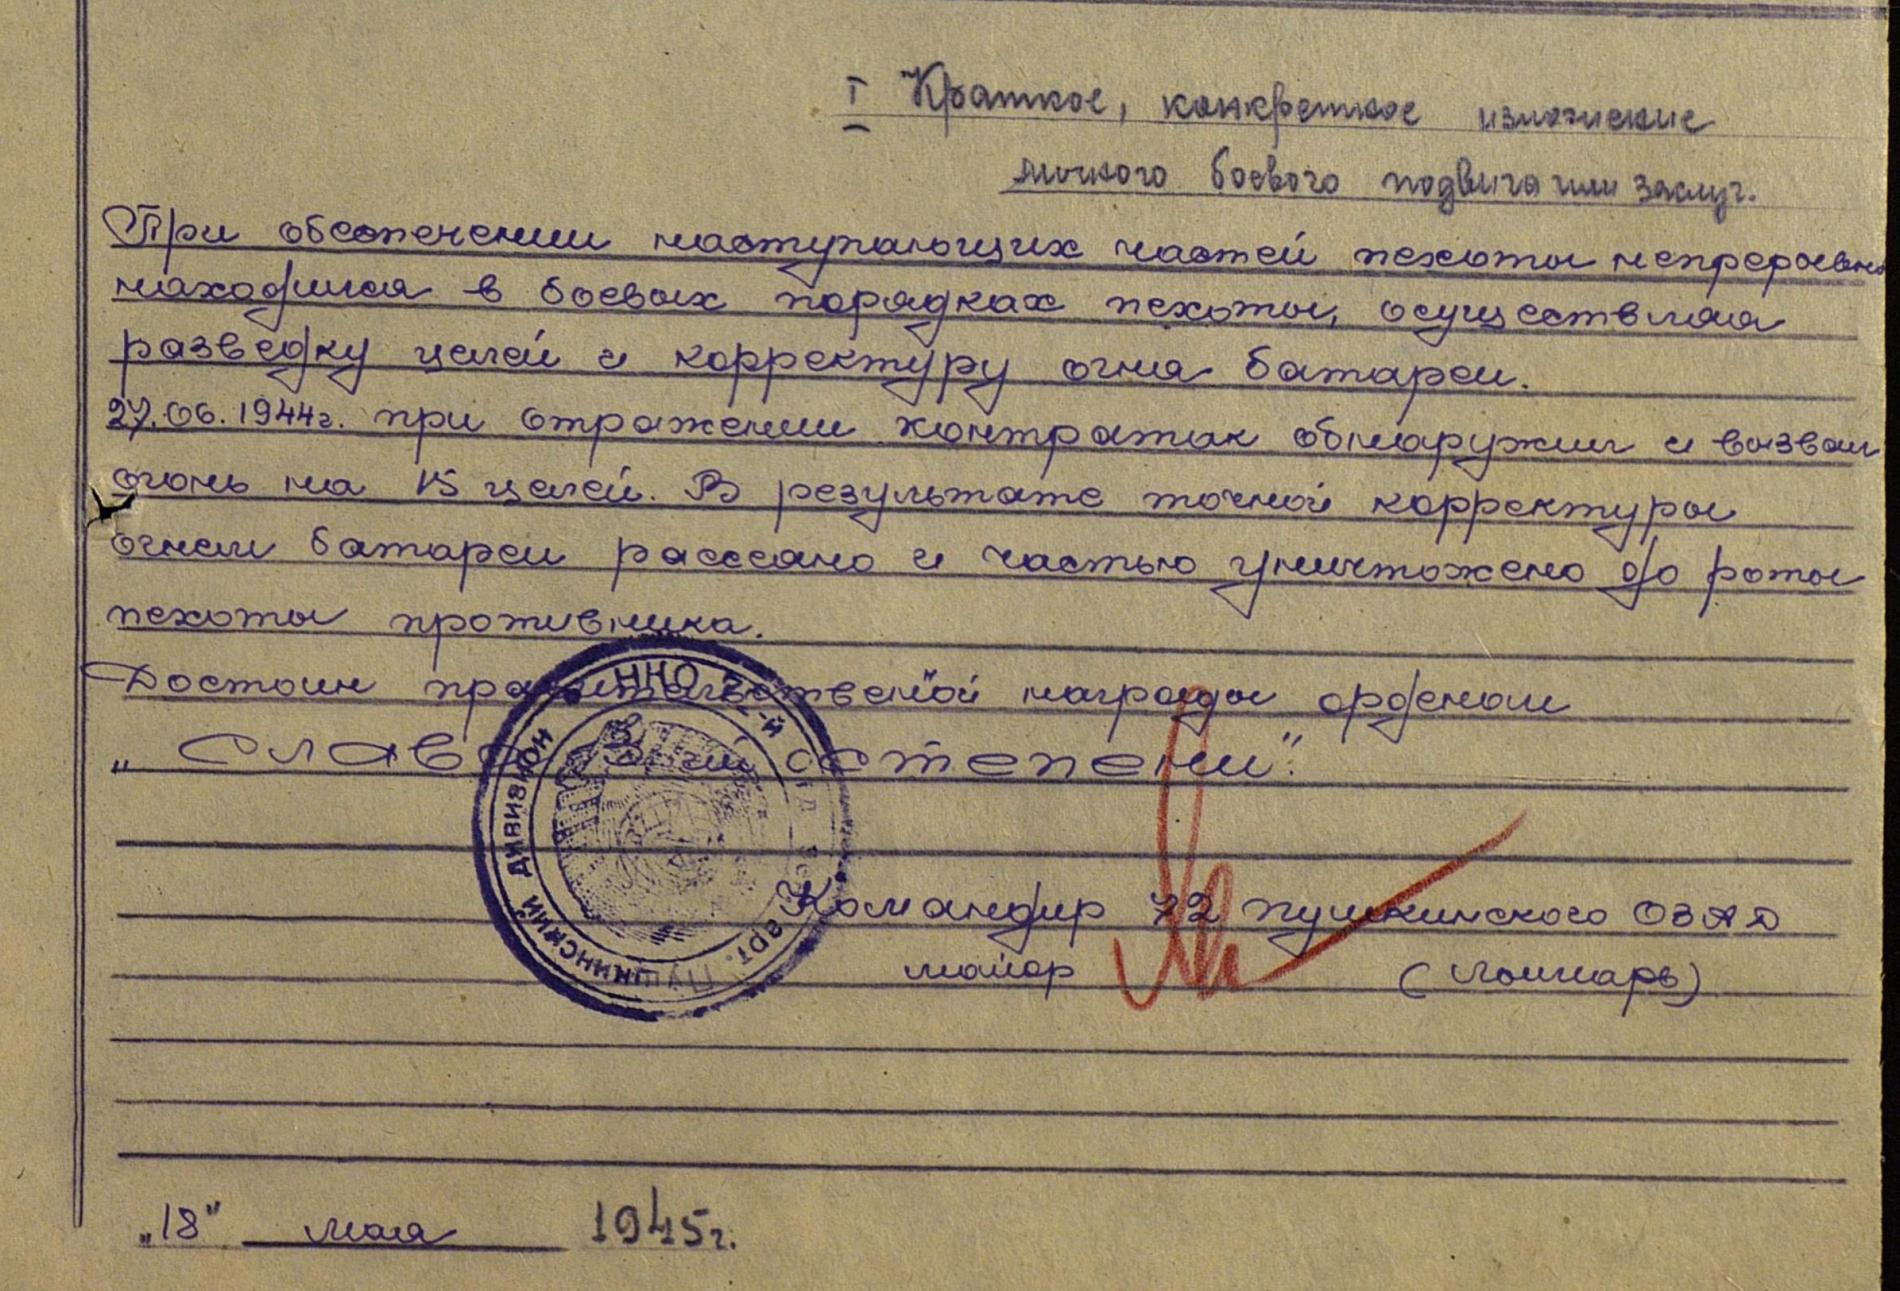 I Краткое, конкретное изложение
личного боевого подвига или заслуг.
При обеспечении наступающих частей пехоты непрерывно
находился в боевых порядках пехоты, осуществляя
разведку целей и корректуру огня батареи.
27.06.1944г. при отражении контратак обнаружил и вызвал
огонь на 15 целей. В результате точной корректуры
огнем батареи рассеяно и частью уничтожено до роты
пехоты противника.
Достоин правительственной награды орденом
„Славы 3-й степени".
Командир 72 Пушкинского ОЗАД
майор
НКО 72-й
арт. Пушкинский дивизион
„18" мая 1945г.